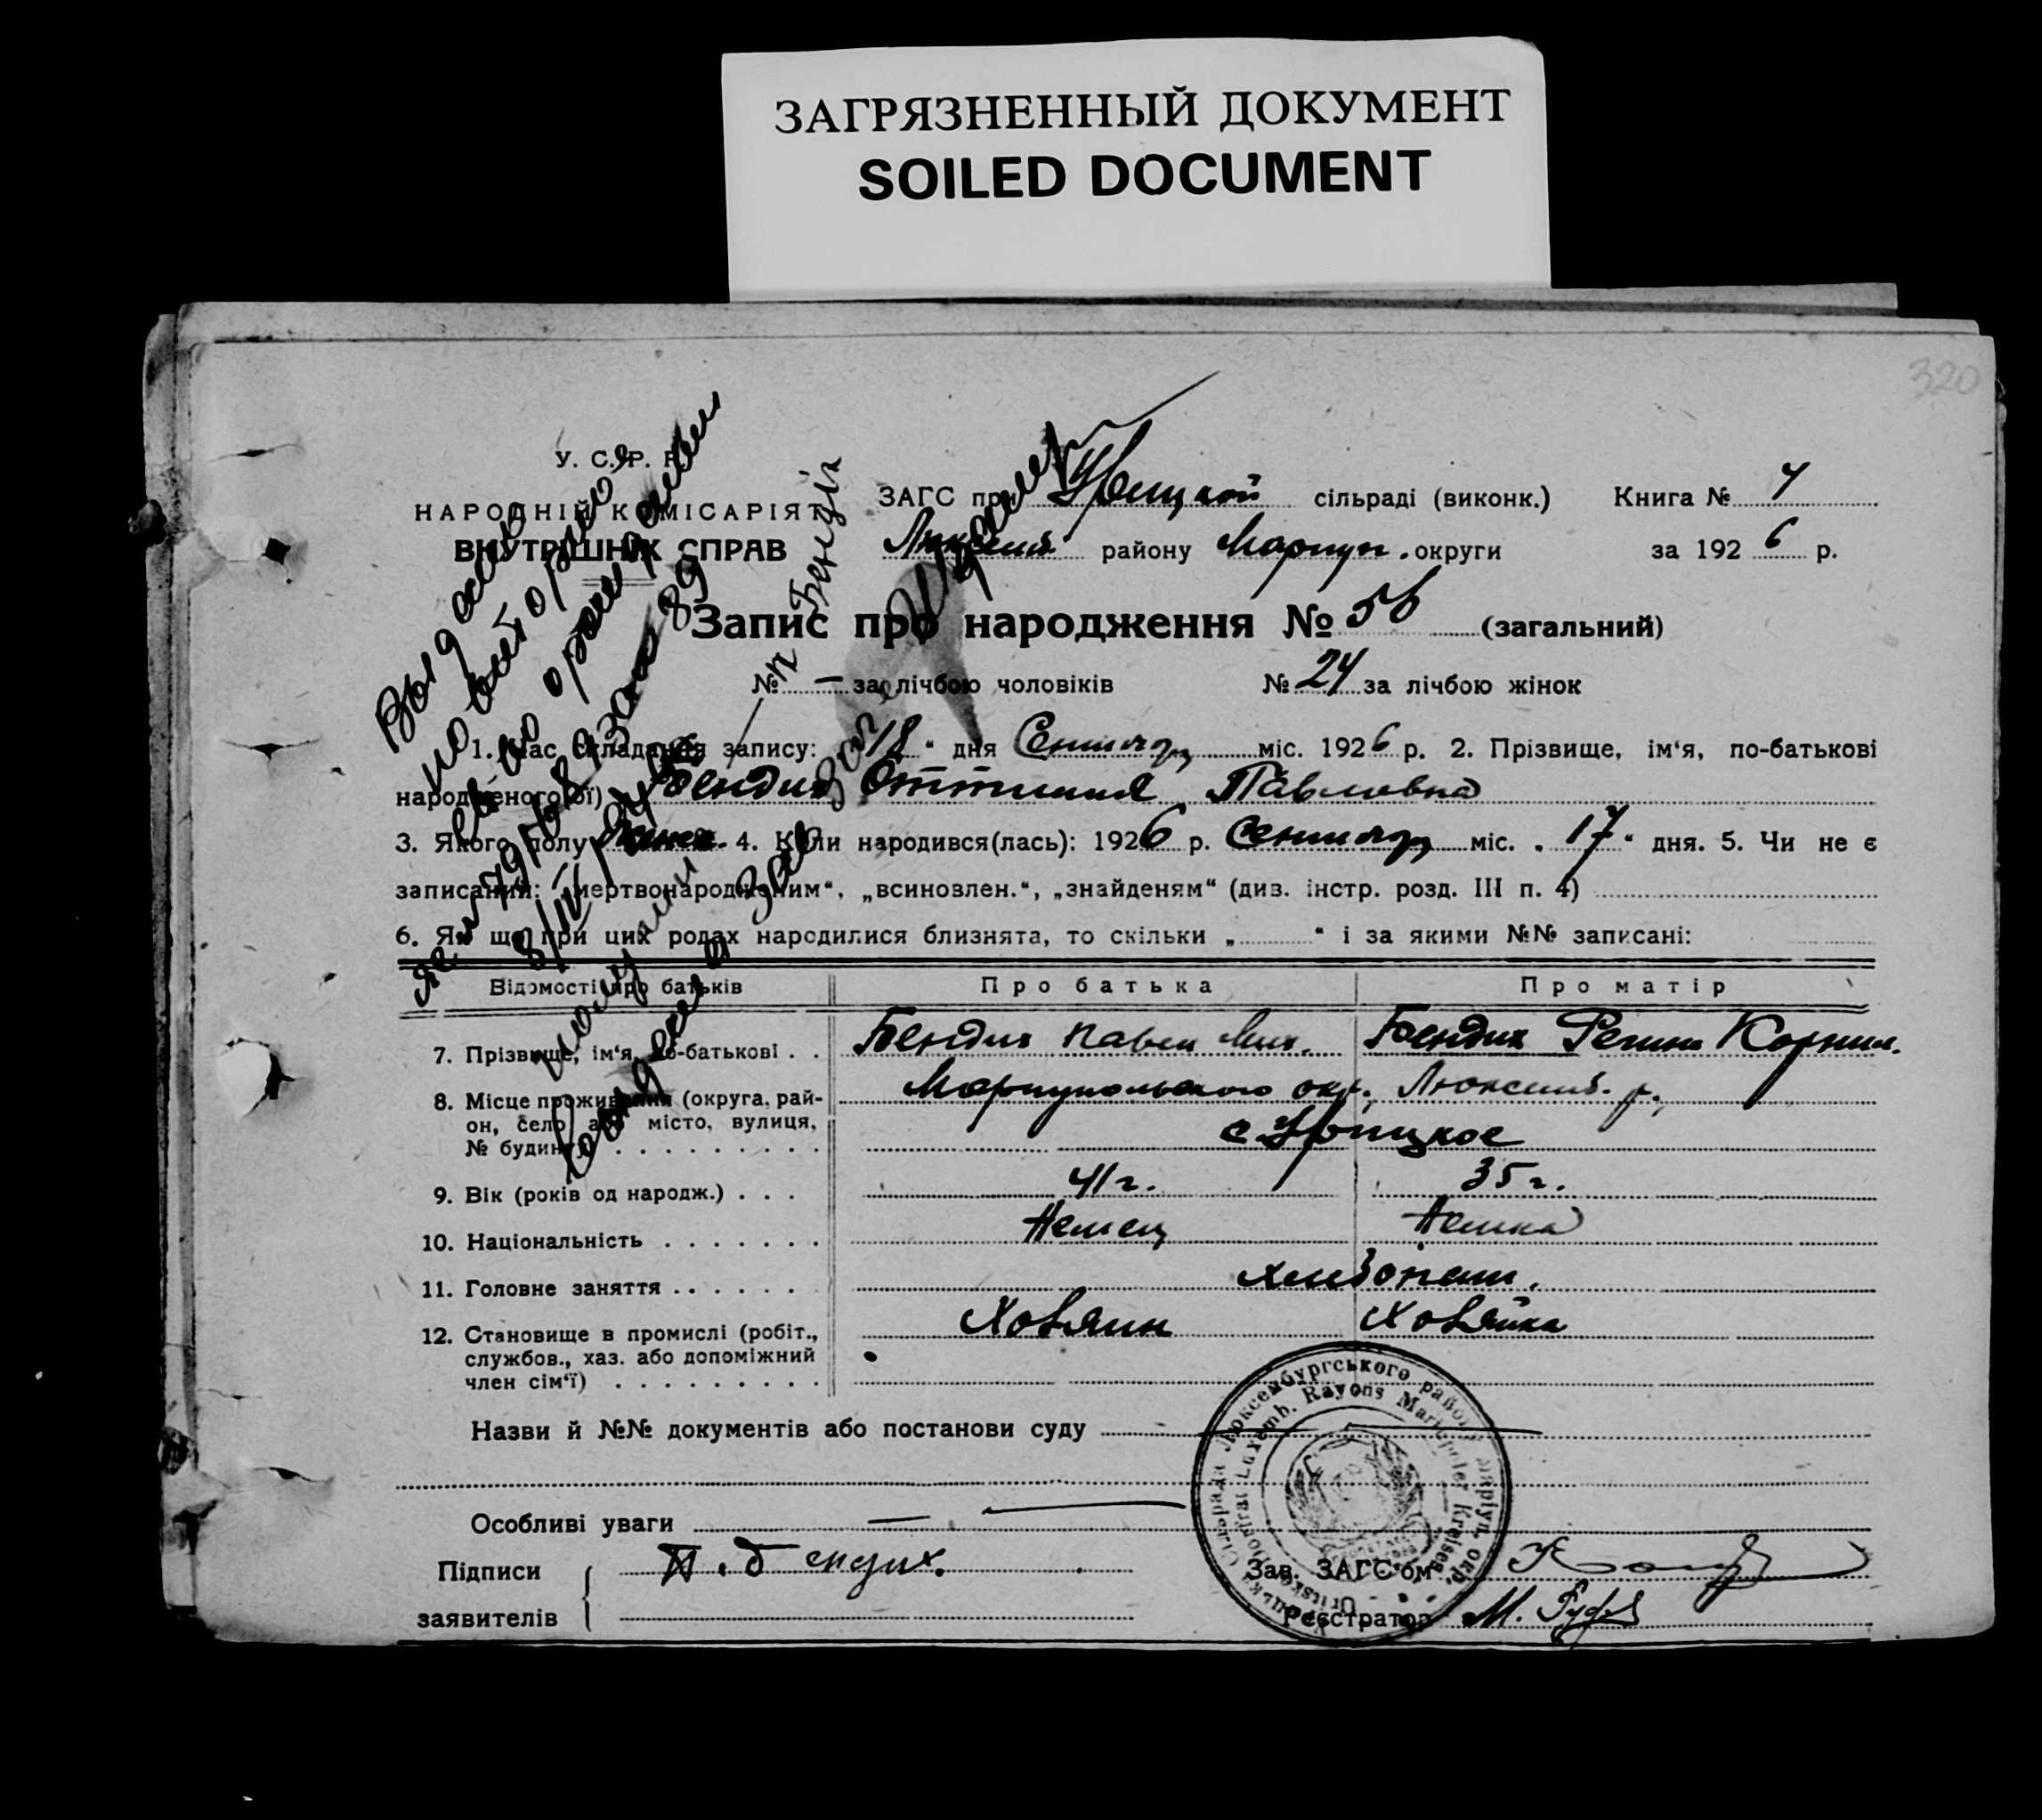 ЗАГРЯЗНЕННЫЙ ДОКУМЕНТ
SOILED DOCUMENT
320
У. С. Р. Р.
НАРОДНІЙ КОМІСАРІЯТ
ВНУТРІШНІХ СПРАВ
ЗАГС при Урицкой сільраді (виконк.) Книга № 7
району Мариуп. округи за 1926 р.
Запис про народження № 56 (загальний)
№ — за лічбою чоловіків № 24 за лічбою жінок
1. Час складання запису: 18 " дня Сентября міс. 1926 р. 2. Прізвище, ім'я, по-батькові
народженого(ої) Бендих Оттилия Павловна
3. Якого полу женск. 4. Коли народився(лась): 1926 р. Сентября міс. „ 17 " дня. 5. Чи не є
записаний: „мертвонародженим", „всиновлен.", „знайденям" (див. інстр. розд. III п. 4)
6. Як що при цих родах народилися близнята, то скільки „ " і за якими №№ записані:
Відомості про батьків Про батька Про матір
7. Прізвище, ім'я, по-батькові . . Бендих Павел Мих. Бендих Регина Корнил.
8. Місце проживання (округа, рай- Мариупольского окр., Люксемб. р.,
он, село або місто, вулиця,
№ будинку) с Урицкое
9. Вік (років од народж.) . . . 41 г. 35 г.
10. Національність Немец Немка
11. Головне заняття хлебопаш.
12. Становище в промислі (робіт., Хозяин Хозяйка
службов., хаз. або допоміжний
член сім'ї)
Назви й №№ документів або постанови суду
Особливі уваги —
Підписи П. Бендих. Зав. ЗАГС'ом
заявителів Реєстратор М.
Выдано
повторно
Бендих
сільрада Люксембургського району Маріуп. окр.
Luxemb. Rayons Mariupoler Kreises